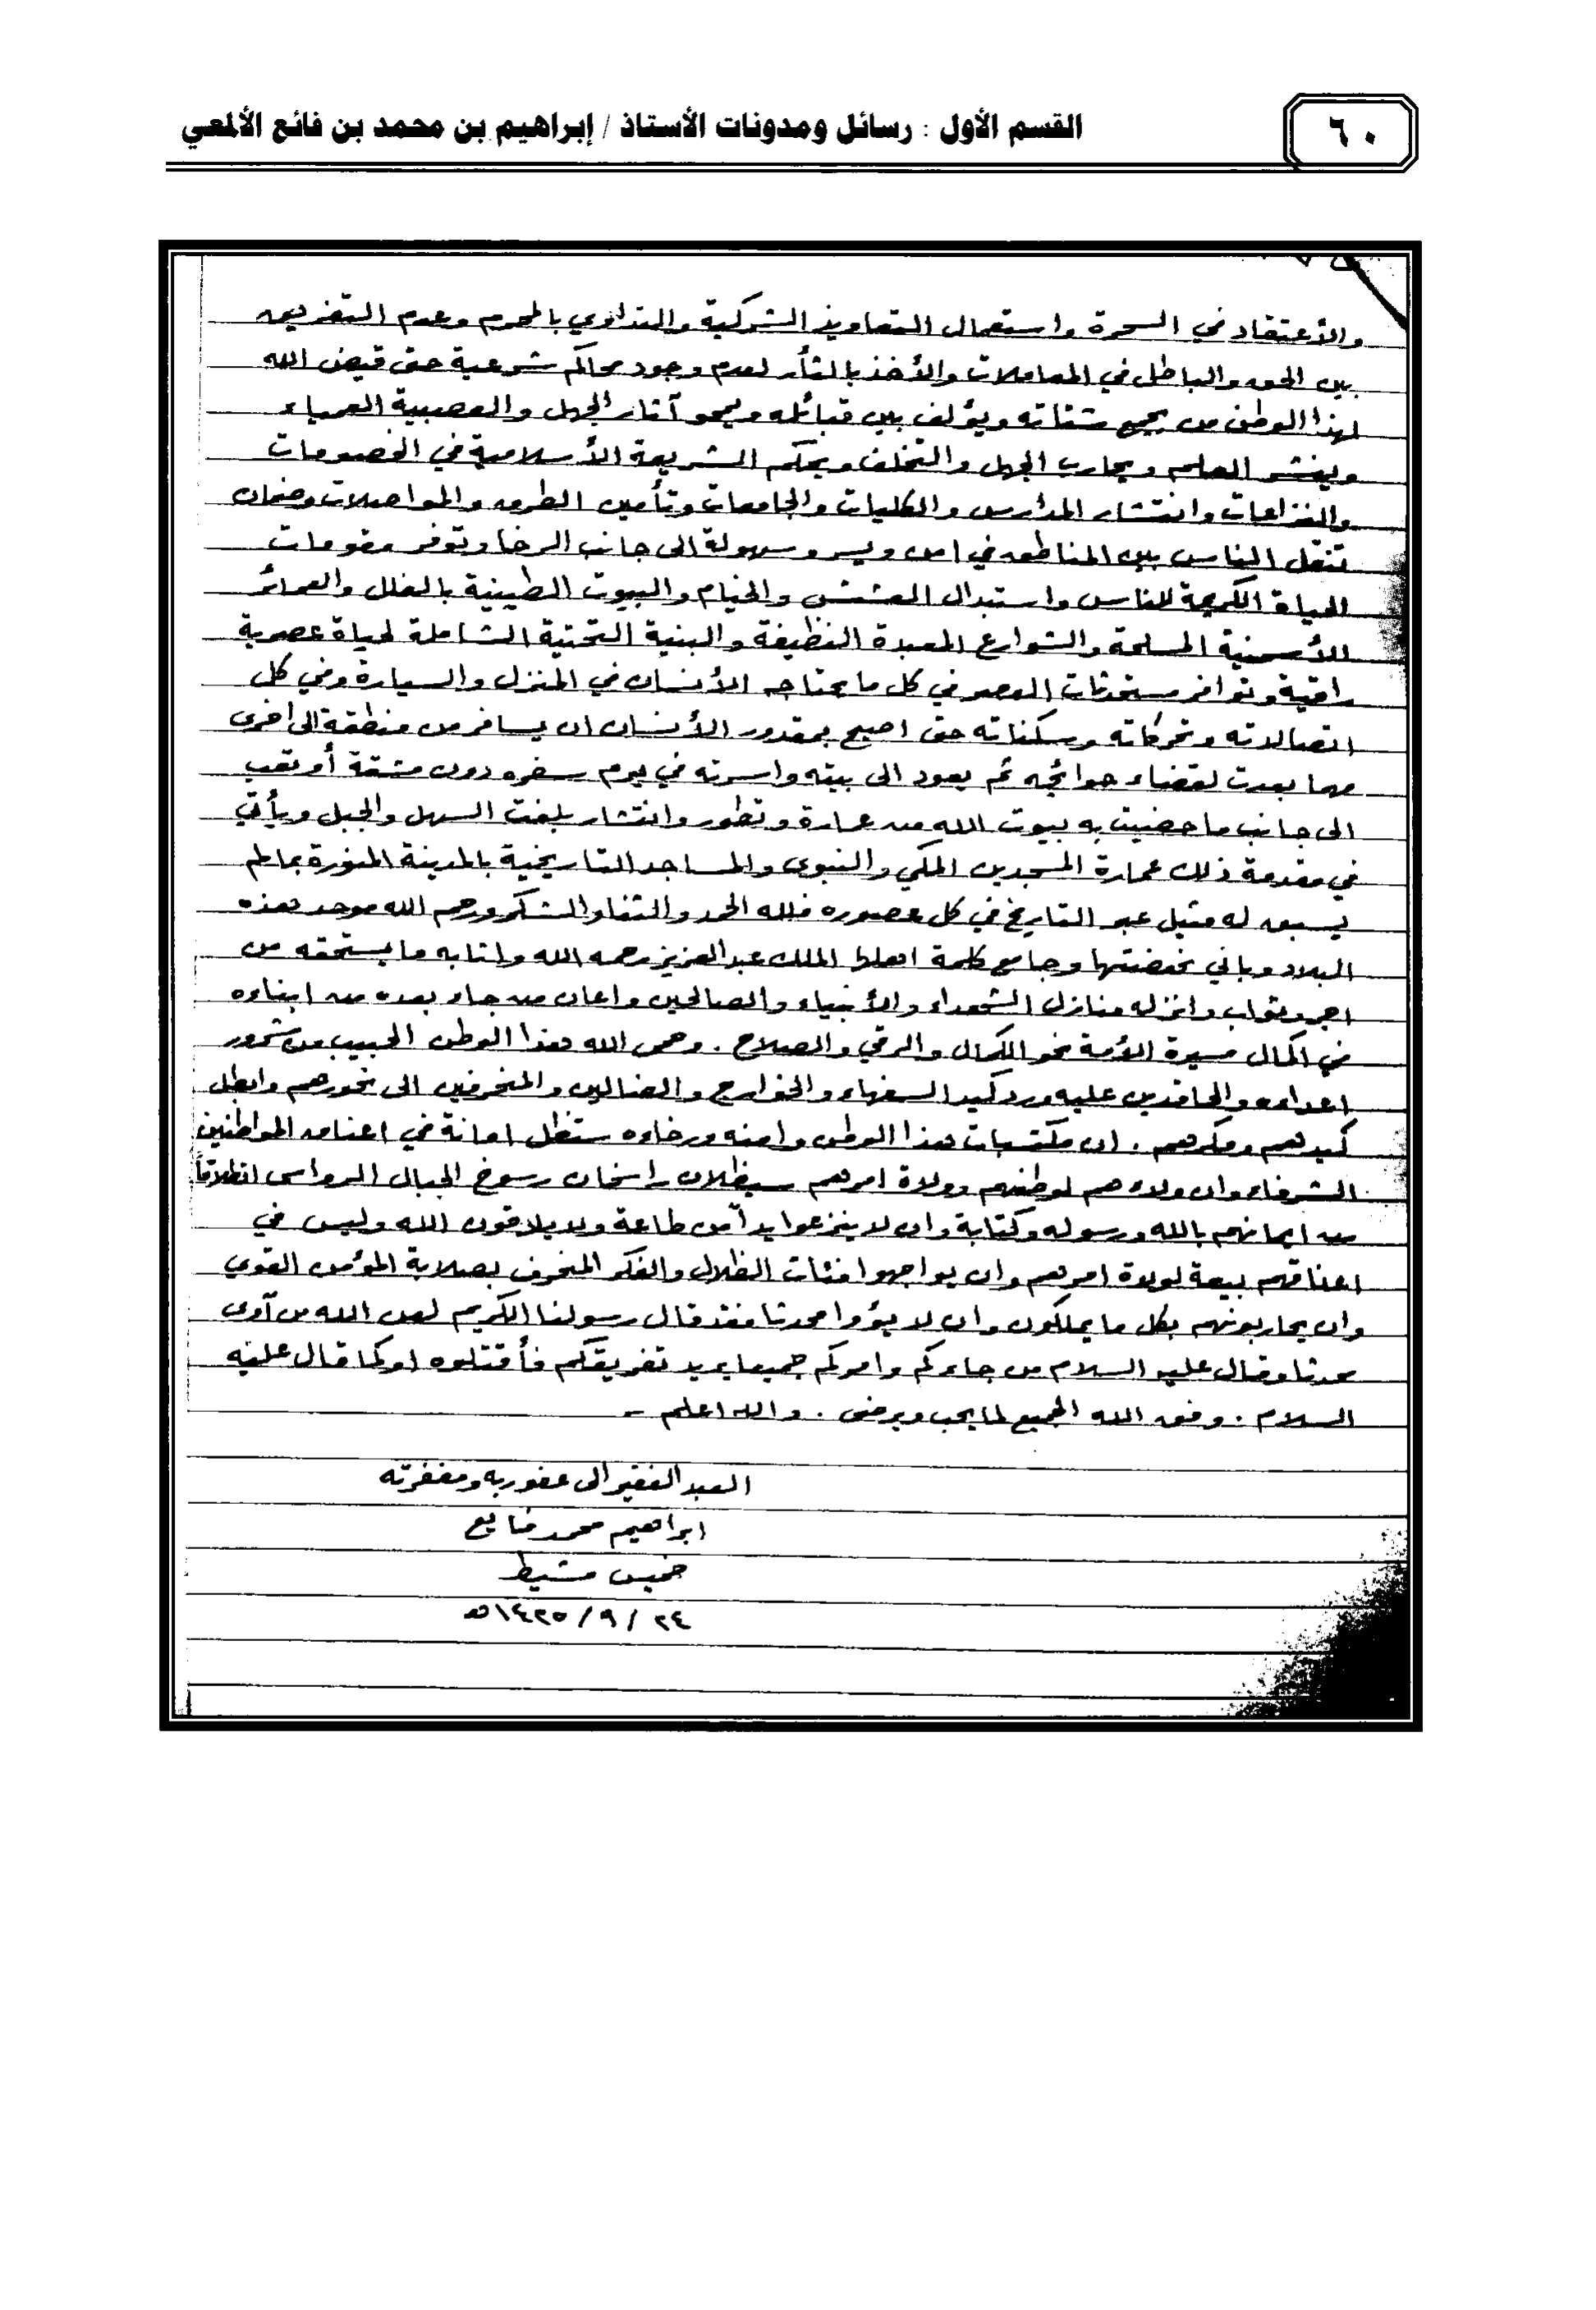 ٦٠
القسم الأول : رسائل ومدونات الأستاذ / إبراهيم بن محمد بن فائع الألمعي
والأعتقاد في السحرة واستعمال التعاويذ الشركية والتداوي بالمحرم وعدم التفريق
بين الحق والباطل في المعاملات والأخذ بالثأر لعدم وجود محاكم شرعية حتى قيض الله
لهذا الوطن من يجمع شتاته ويؤلف بين قبائله ويمحو آثار الجهل والعصبية العمياء
وينشر العلم ويحارب الجهل والتخلف ويحكم الشريعة الأسلامية في الخصومات
والنزاعات وانتشار المدارس والكليات والجامعات وتأمين الطرق والمواصلات وضمان
تنقل الناس بين المناطق في امن ويسر وسهولة الى جانب الرخا وتوفر مقومات
الحياة الكريمة للناس واستبدال العشش والخيام والبيوت الطينية بالفلل والعمائر
الأسمنية المسلحة والشوارع المعبدة النظيفة والبنية التحتية الشاملة لحياة عصرية
راقية وتوافر مستحدثات العصر في كل ما يحتاجه الأنسان في المنزل والسيارة وفي كل
اتصالاته وتحركاته وسكناته حتى اصبح بمقدور الأنسان ان يسافر من منطقة الى اخرى
مهما بعدت لقضاء حوائجه ثم يعود الى بيته واسرته في يوم سفره دون مشقة أو تعب
الى جانب ما حضيت به بيوت الله من عمارة وتطور وانتشار بلغت السهل والجبل ويأتي
في مقدمة ذلك عمارة المسجدين المكي والنبوي والمساجد التاريخية بالمدينة المنورة بما لم
يسبق له مثيل عبر التاريخ في كل عصوره فلله الحمد والثنا والشكر ورحم الله موحد هذه
البلاد وباني نهضتها وجامع كلمة اهلها الملك عبدالعزيز رحمه الله واثابه ما يستحقه من
اجر وثواب وانزله منازل الشهداء والأنبياء والصالحين واعان من جاء بعده من ابناءه
في اكمال مسيرة الأمة نحو الكمال والرقي والصلاح . وحمى الله هذا الوطن الحبيب من شرور
اعداءه والحاقدين عليه ورد كيد السفهاء والخوارج والضالين والمنحرفين الى نحورهم وابطل
كيدهم ومكرهم . ان مكتسبات هذا الوطن وامنه ورخاءه ستظل امانة في اعناق المواطنين
الشرفاء وان ولاءهم لوطنهم وولاة امرهم سيظلان راسخان رسوخ الجبال الرواسي انطلاقاً
من ايمانهم بالله ورسوله وكتابة وان لا ينزعوا يداً من طاعة ولا يلاقون الله وليس في
اعناقهم بيعة لولاة امرهم وان يواجهوا فئات الظلال والفكر المنحرف بصلابة المؤمن القوي
وان يحاربونهم بكل ما يملكون وان لا يؤوا محدثا فقد قال رسولنا الكريم لعن الله من آوى
محدثا وقال عليه السلام من جاءكم وامركم جميعا يريد تفريقكم فأقتلوه او كما قال عليه
السلام . وفق الله الجميع لما يحب ويرضى . والله اعلم -
العبد الفقير الى عفو ربه ومغفرته
ابراهيم محمد فايع
خميس مشيط
٢٤ / ٩ / ١٤٢٥هـ